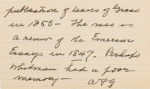 publication of Leaves of Grass
in 1855 - The mss is
a review of the Emerson
Essays in 1847. Perhaps
Whitman had a poor
memory -